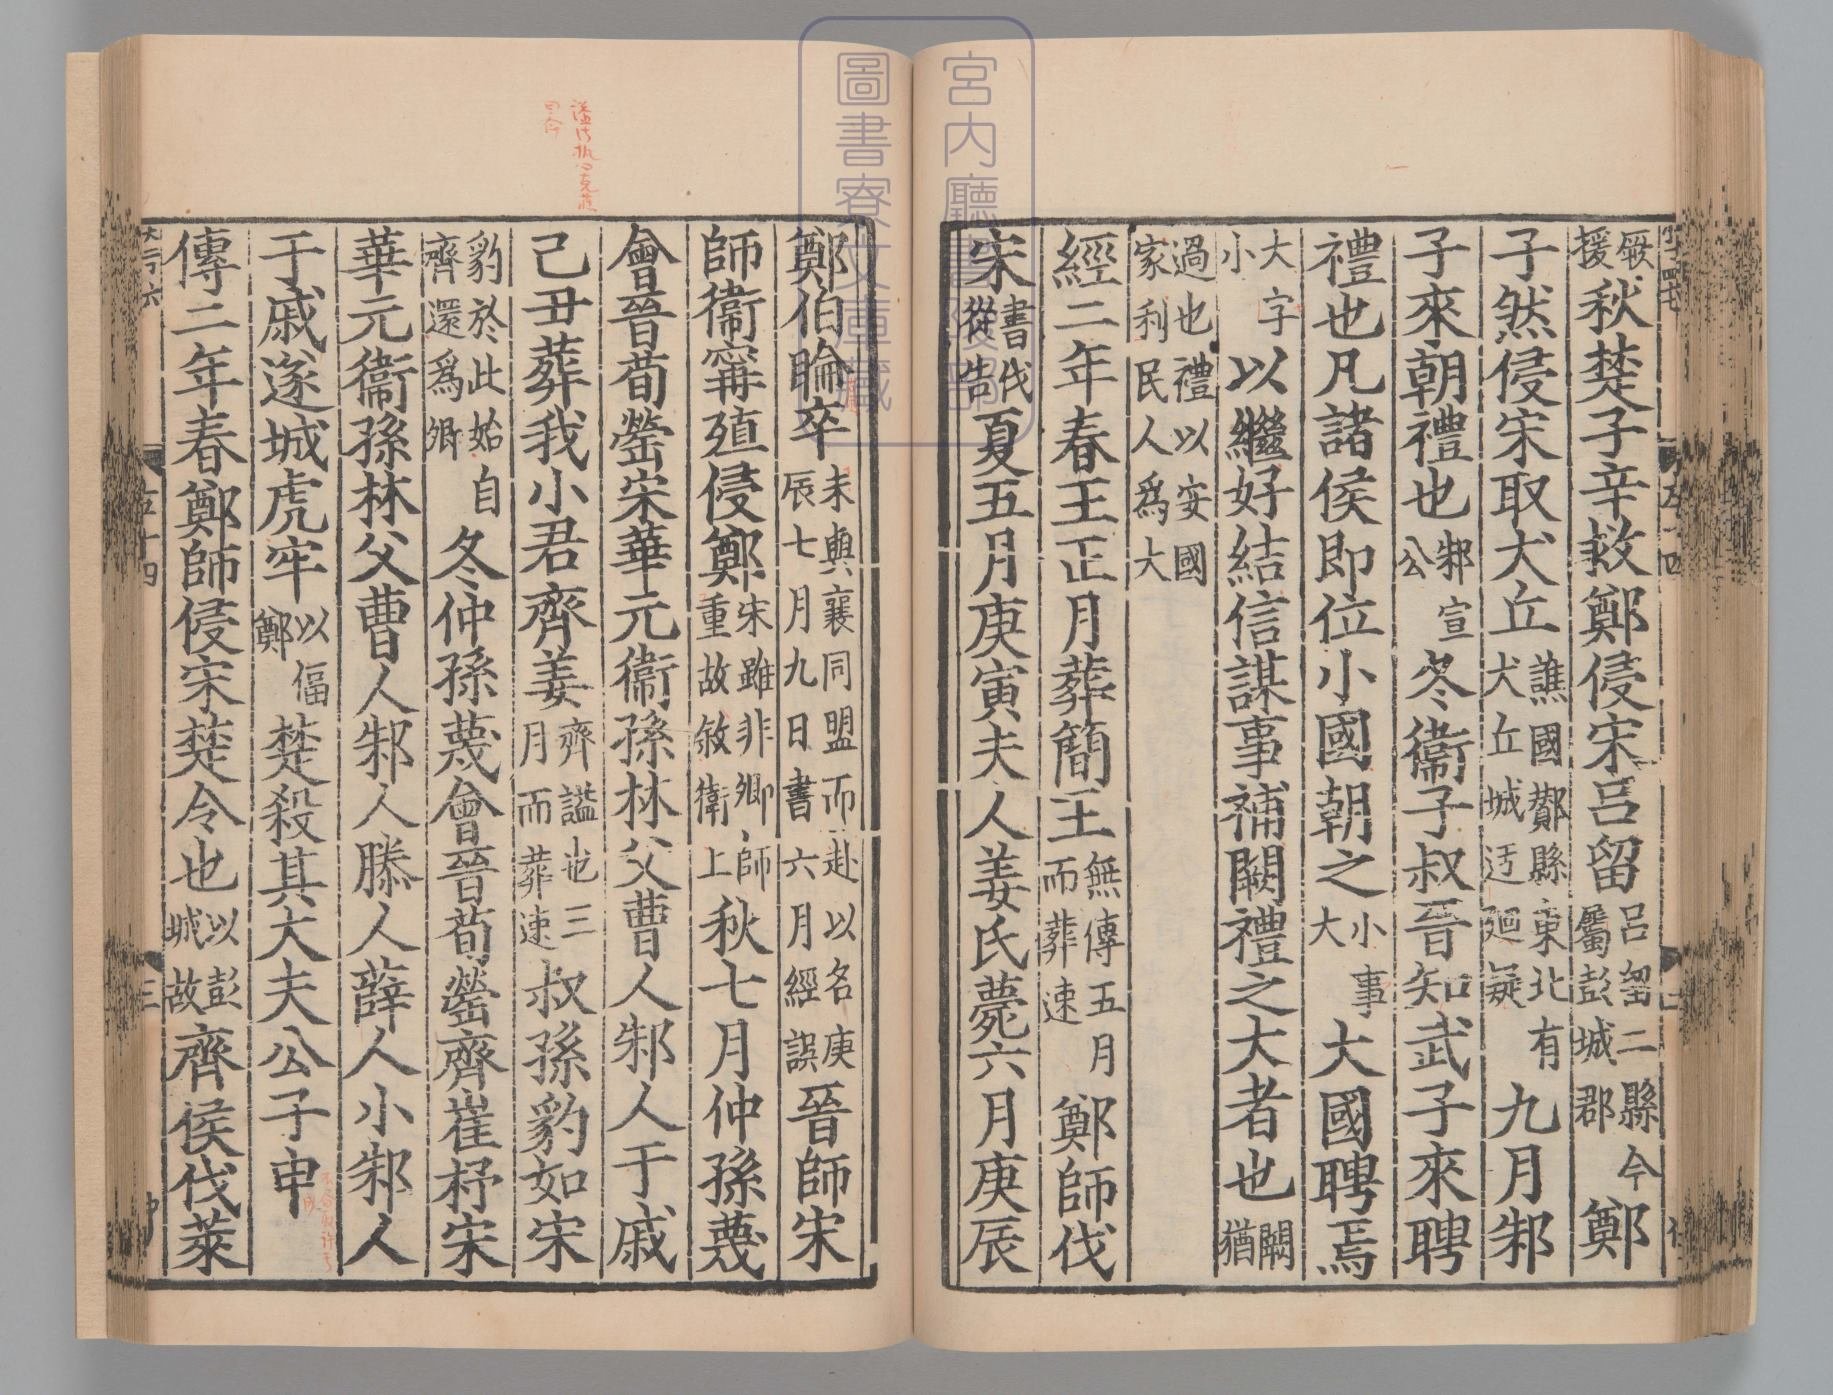 厥援秋楚子辛救鄭侵宋呂留呂留二縣今屬彭城郡鄭
子然侵宋取犬丘譙國酇縣東北有犬丘城迃廻疑九月邾
子來朝禮也邾宣公冬衛子叔晉知武子來聘
禮也凡諸侯即位小國朝之小事大大國聘焉
大字小以繼好結信謀事補闕禮之大者也闕猶
過也禮以安國家利民人爲大
經二年春王正月葬簡王無傳五月而葬速鄭師伐
宋書伐從告夏五月庚寅夫人姜氏薨六月庚辰
鄭伯睔卒未與襄同盟而赴以名庚辰七月九日書六月經誤晉師宋
師衛甯殖侵鄭宋雖非卿師重故敘衛上秋七月仲孫蔑
會晉荀罃宋華元衛孫林父曹人邾人于戚
己丑葬我小君齊姜齊謚也三月而葬速叔孫豹如宋
豹於此始自齊還爲卿冬仲孫蔑會晉荀罃齊崔杼宋
華元衛孫林父曹人邾人滕人薛人小邾人
于戚遂城虎牢以偪鄭楚殺其大夫公子申
傳二年春鄭師侵宋楚令也以彭城故齊侯伐萊
宮内廳書陵部
圖書寮文庫藏